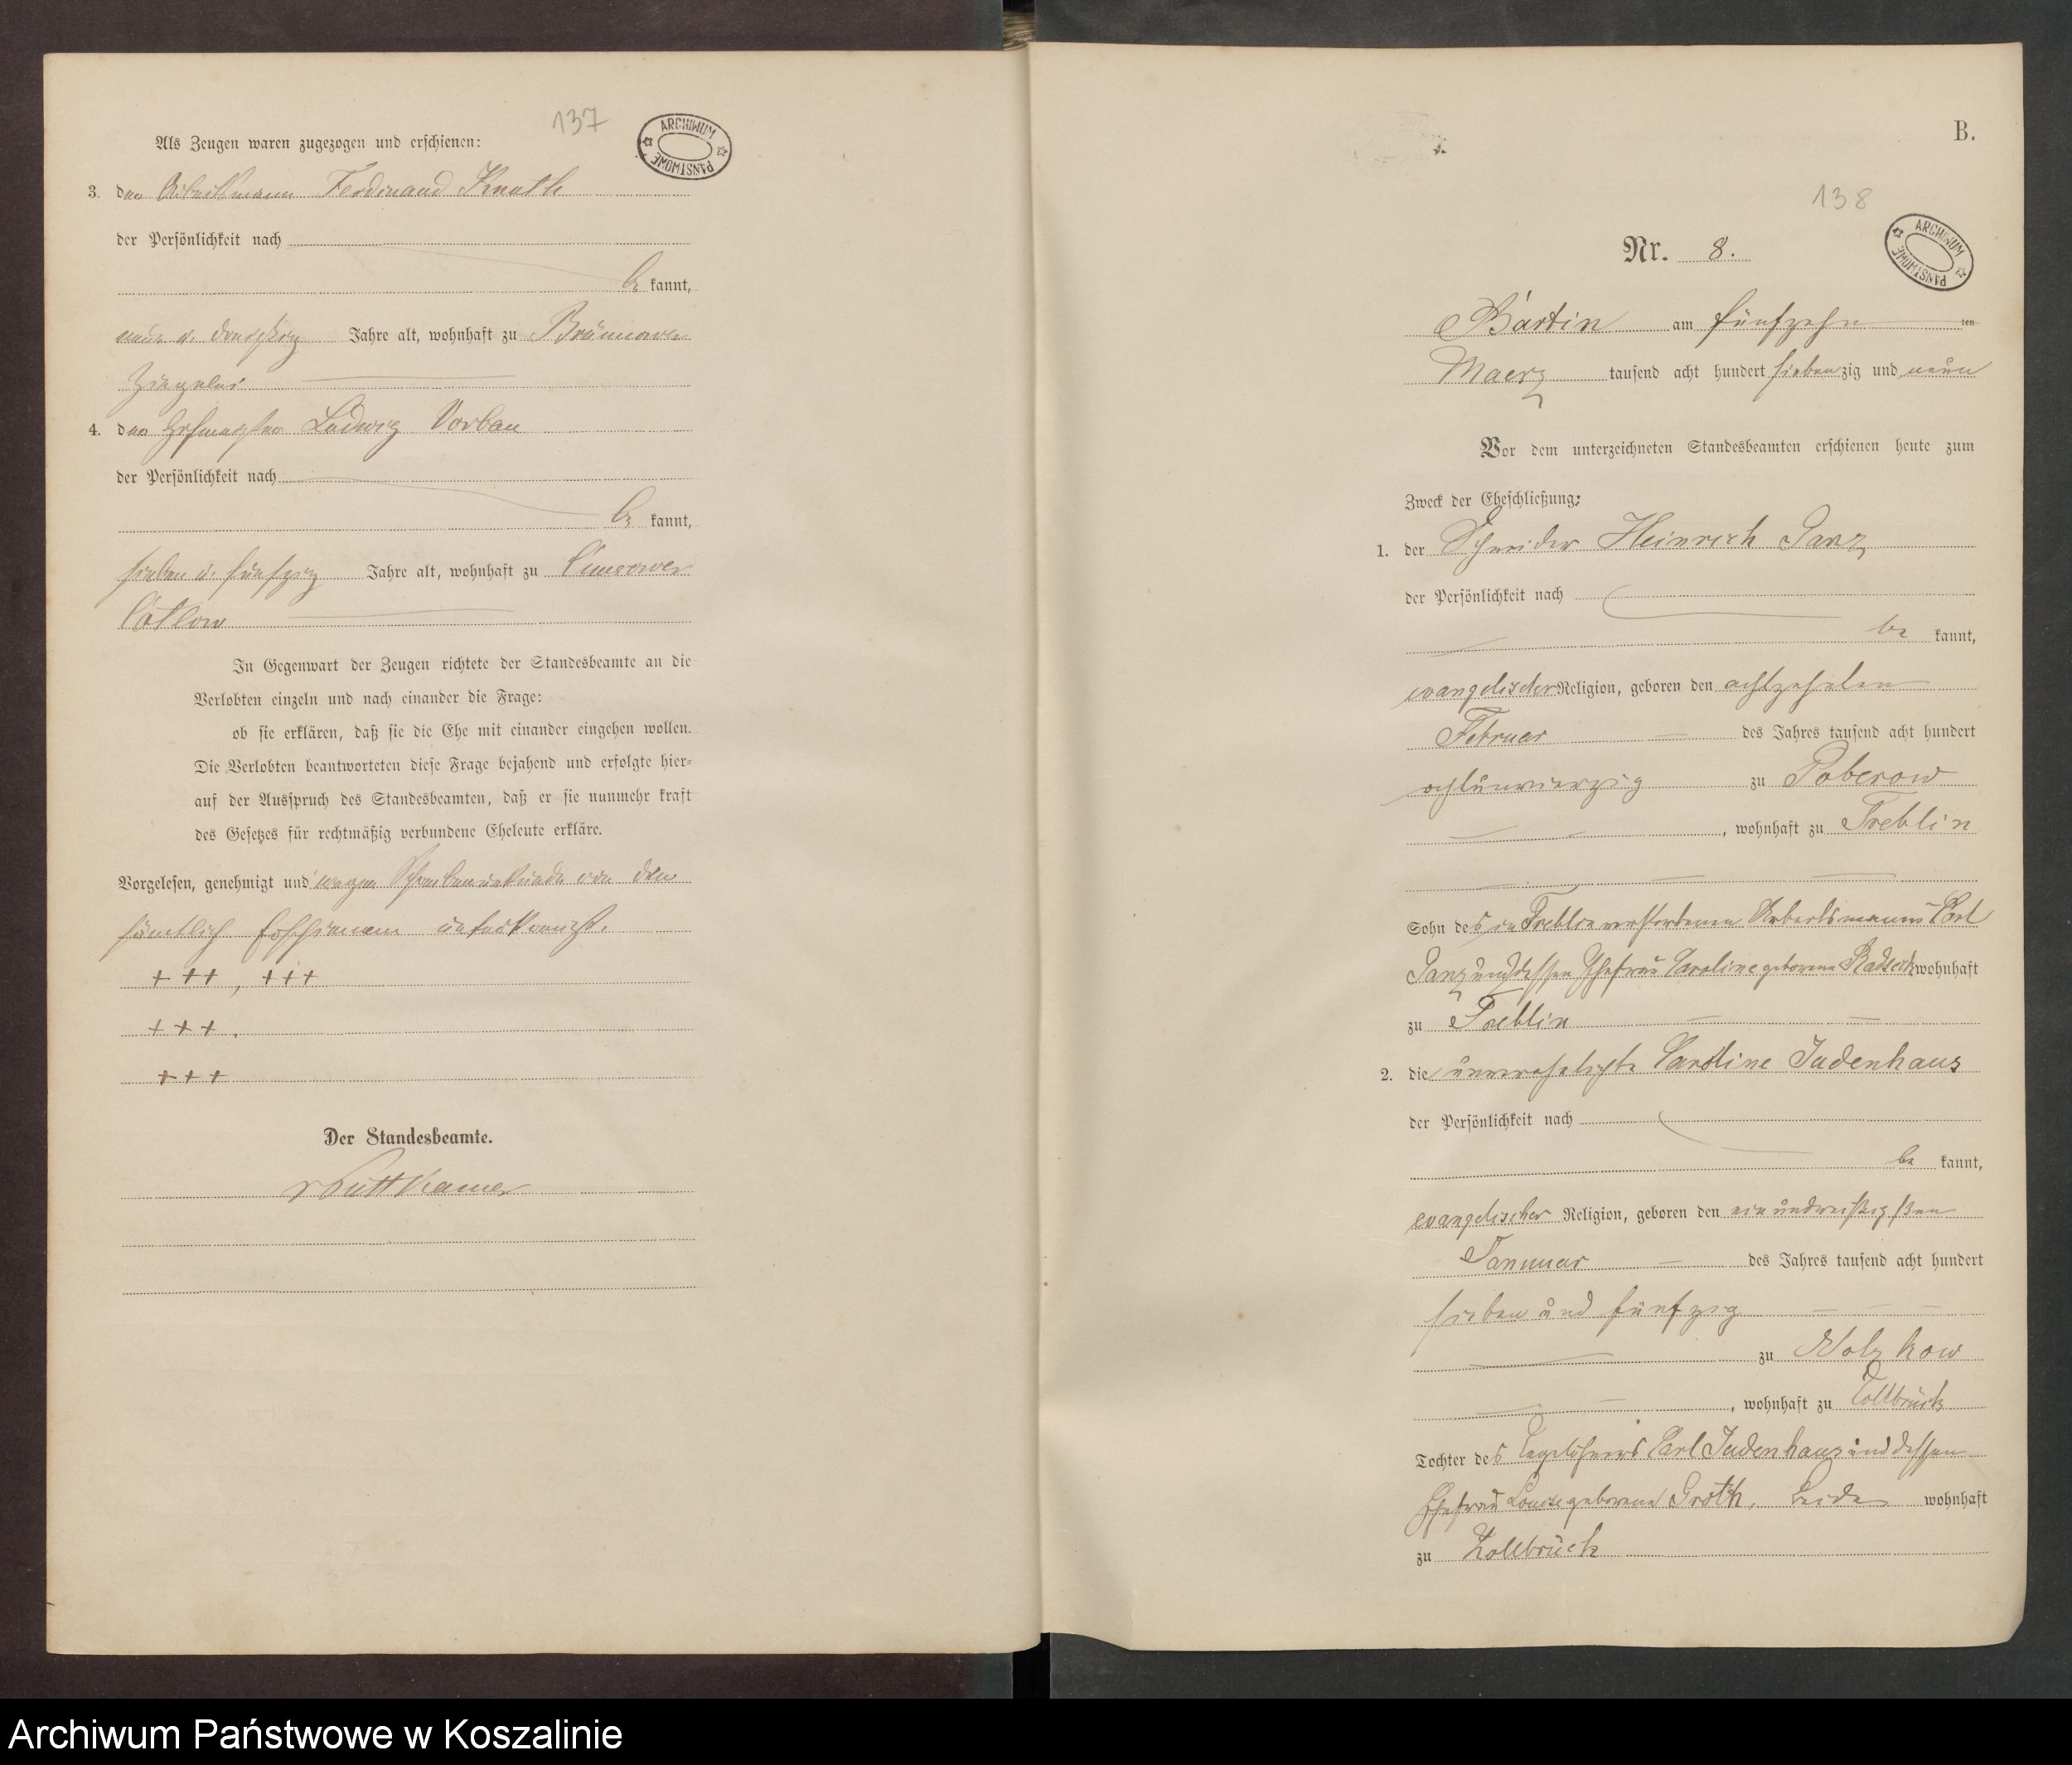 137
ARCHIWUM PAŃSTWOWE
Als Zeugen waren zugezogen und erschienen:
3. der Arbeitsmann Ferdinand Knuth
der Persönlichkeit nach
be kannt,
neun u. dreißig Jahre alt, wohnhaft zu
Ziegelei
4. der Ludwig Vorbau
der Persönlichkeit nach
be kannt,
sieben u. fünfzig Jahre alt, wohnhaft zu
In Gegenwart der Zeugen richtete der Standesbeamte an die
Verlobten einzeln und nach einander die Frage:
ob sie erklären, daß sie die Ehe mit einander eingehen wollen.
Die Verlobten beantworteten diese Frage bejahend und erfolgte hier-
auf der Ausspruch des Standesbeamten, daß er sie nunmehr kraft
des Gesetzes für rechtmäßig verbundene Eheleute erkläre.
Vorgelesen, genehmigt und wegen Schreibensunkunde von den
sämtlich Erschienenen unterkreuzt.
+++, +++
+++.
+++
Der Standesbeamte.
vPuttkamer
B.
138
ARCHIWUM PAŃSTWOWE
Nr. 8.
Bartin am fünfzehn ten
Maerz tausend acht hundert siebenzig und neun
Vor dem unterzeichneten Standesbeamten erschienen heute zum
Zweck der Eheschließung:
1. der Schneider Heinrich Janz
der Persönlichkeit nach
be kannt,
evangelischer Religion, geboren den achtzehnten
Februar des Jahres tausend acht hundert
achtunvierzig zu Poberow
, wohnhaft zu Treblin
Sohn des in Treblin verstorbenen Arbeitsmanns Carl
Janz und dessen Ehefrau Caroline geborene wohnhaft
zu Treblin
2. die unverehelichte Caroline Judenhaus
der Persönlichkeit nach
be kannt,
evangelischer Religion, geboren den einundreißigsten
Januar des Jahres tausend acht hundert
sieben und fünfzig
zu Wolzkow
, wohnhaft zu Zollbrück
Tochter des Tagelöhners Carl Judenhaus und dessen
Ehefrau Louise geborene Groth, beide wohnhaft
zu Zollbrück
Archiwum Państwowe w Koszalinie